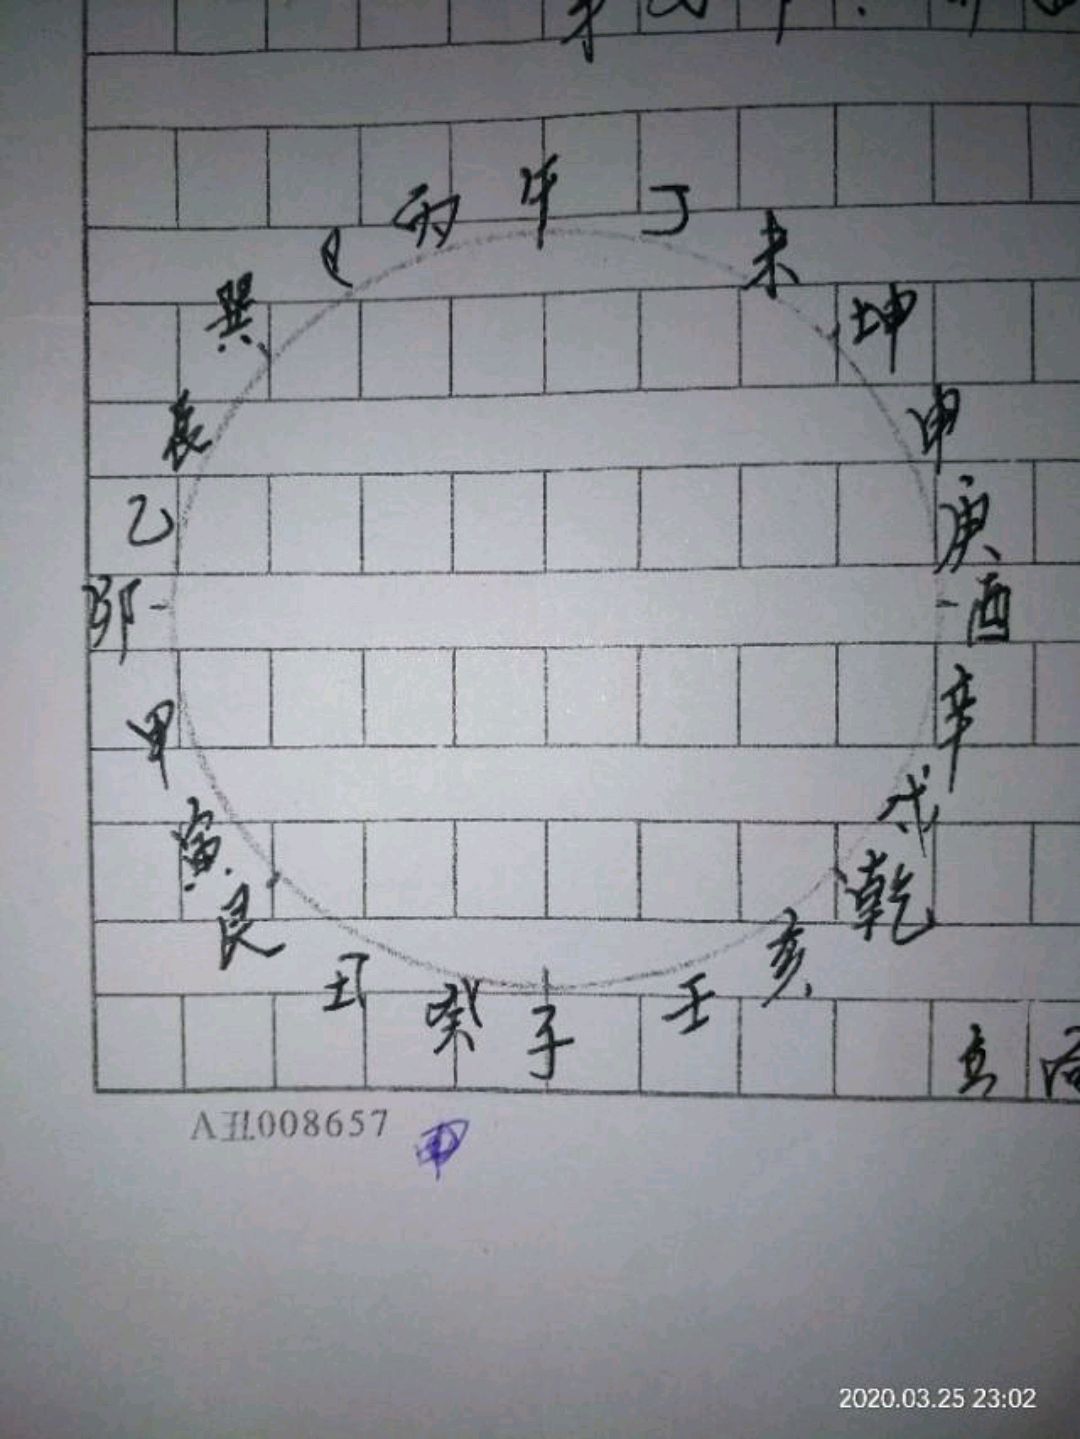 午
丙
丁
巳
未
巽
坤
辰
申
乙
庚
卯
酉
甲
辛
寅
戌
艮
乾
丑
亥
癸
子
壬
A丑008657
2020.03.25 23:02